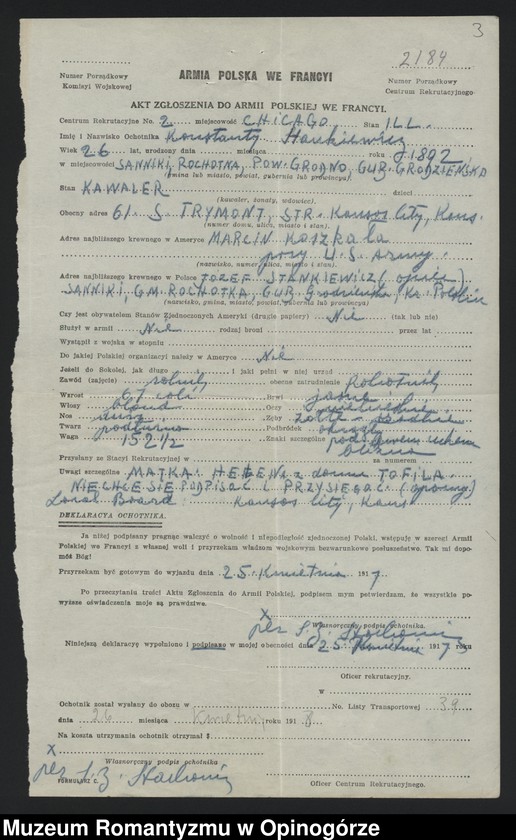 3
2184
Numer Porządkowy
Komisyi Wojskowej
ARMIA POLSKA WE FRANCYI
Numer Porządkowy
Centrum Rekrutacyjnego
AKT ZGŁOSZENIA DO ARMII POLSKIEJ WE FRANCYI.
Centrum Rekrutacyjne No. 2 miejscowość CHICAGO Stan ILL.
Imię i Nazwisko Ochotnika Konstanty Stankiewicz
Wiek 26 lat, urodzony dnia miesiąca roku 1892
w miejscowości SANNIKI, ROCHOTNA, POW. GRODNO, GUB. GRODZIEŃSKA
(gmina lub miasto, powiat, gubernia lub prowincya)
Stan KAWALER dzieci
(kawaler, żonaty, wdowiec).
Obecny adres 61. S. TRYMONT, STR. Kansas City, Kans.
(numer domu, ulica, miasto i stan).
Adres najbliższego krewnego w Ameryce MARCIN Koszkala
przy U.S. Army.
(nazwisko, numer, ulica, miasto i stan).
Adres najbliższego krewnego w Polsce JOZEF STANKIEWICZ (ojciec)
SANNIKI, GM. ROCHOTKA, GUB. Grodzieńska,
(nazwisko, gmina, miasto, powiat, gubernia lub prowincya)
Czy jest obywatelem Stanów Zjednoczonych Ameryki (drugie papiery) Nie (tak lub nie)
Służył w armii Nie rodzaj broni przez lat
Wystąpił z wojska w stopniu
Do jakiej Polskiej organizacyi należy w Ameryce Nie
Jeżeli do Sokolej, jak długo i jaki pełni w niej urząd
Zawód (zajęcie) rolnik obecne zatrudnienie Robotnik
Wzrost 67 cali Brwi jasne
Włosy blond Oczy niebieskie
Nos duży Zęby
Twarz podłużna Podbródek okrągły
Waga 152 1/2 Znaki szczególne pod lewem uchem
blizna
Przysłany ze Stacyi Rekrutacyjnej w za numerem
Uwagi szczególne MATKA: HELENA z domu TOFILA.
NIECHCE SIE PODPISAĆ I PRZYSIEGAĆ
Local Board: Kansas City, Kans
DEKLARACYA OCHOTNIKA.
Ja niżej podpisany pragnąc walczyć o wolność i niepodległość zjednoczonej Polski, wstępuję w szeregi Armii
Polskiej we Francyi z własnej woli i przyrzekam władzom wojskowym bezwarunkowe posłuszeństwo. Tak mi dopo-
móż Bóg!
Przyrzekam być gotowym do wyjazdu dnia 25. Kwietnia 1917
Po przeczytaniu treści Aktu Zgłoszenia do Armii Polskiej, podpisem mym potwierdzam, że wszystkie po-
wyższe oświadczenia moje są prawdziwe.
X
Własnoręczny podpis ochotnika. x
per
Niniejszą deklaracyę wypełniono i podpisano w mojej obecności dnia 25 Kwietnia 1917 roku
Oficer rekrutacyjny.
w
Ochotnik został wysłany do obozu w No. Listy Transportowej 39
dnia 26 miesiąca Kwietnia roku 1918
Na koszta utrzymania ochotnik otrzymał $
X
Własnoręczny podpis ochotnika
per
FORMULARZ C.
Oficer Centrum Rekrutacyjnego.
Muzeum Romantyzmu w Opinogórze